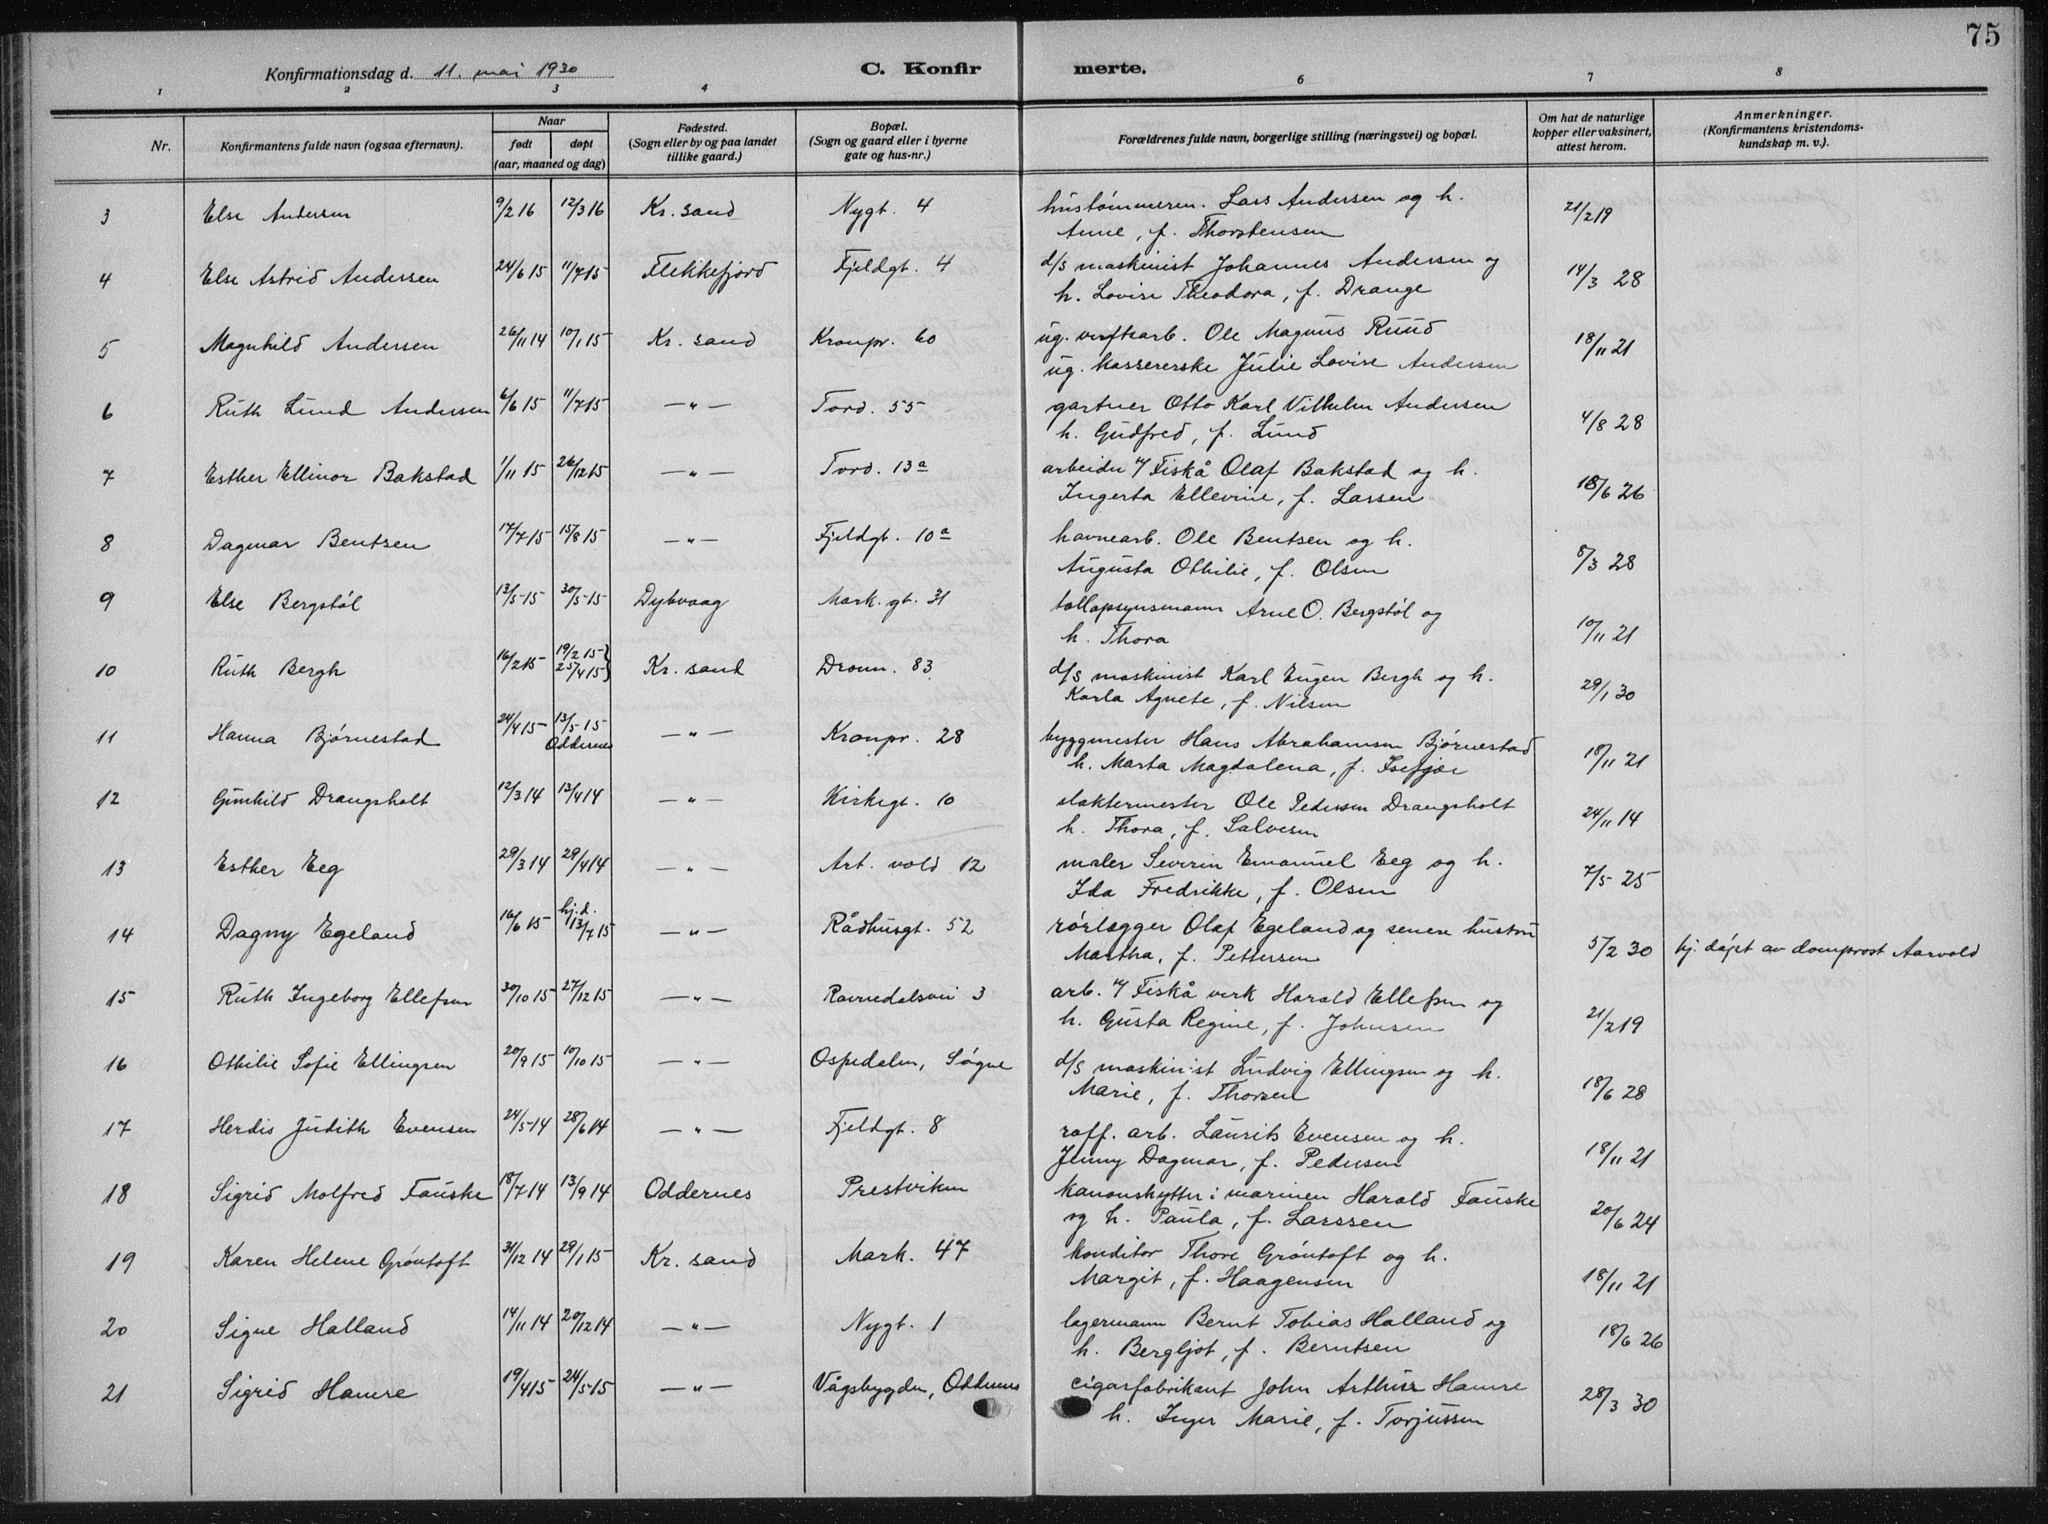 75
Konfirmationsdag d. 11. mai 1930 C. Konfirmerte.
1 2 3 4 6 7 8
Nr. Konfirmantens fulde navn (ogsaa efternavn). Naar født døpt (aar, maaned og dag) Fødested. (Sogn eller by og paa landet tillike gaard.) Bopæl. (Sogn og gaard eller i byerne gate og hus-nr.) Forældrenes fulde navn, borgerlige stilling (næringsvei) og bopæl. Om hat de naturlige kopper eller vaksinert, attest herom. Anmerkninger. (Konfirmantens kristendomskundskap m. v.).
3 Else Andersen 9/2 16 12/3 16 Kr. sand Nygt. 4 hustømmerm. Lars Andersen og h.
Anne, f. Thorstensen 21/2 19
4 Else Astrid Andersen 24/6 15 11/7 15 Flekkefjord Fjeldgt. 4 d/s maskinist Johannes Andersen og
h. Lovise Theodora, f. Drange 14/3 28
5 Magnhild Andersen 26/11 14 10/1 15 Kr. sand Kronpr. 60 ug. verftsarb. Ole Magnus Ruud
ug. kassererske Julie Lovise Andersen 18/11 21
6 Ruth Lund Andersen 6/6 15 11/7 15 — " — Tord. 55 gartner Otto Karl Vilhelm Andersen
h. Gudfred, f. Lund 4/8 28
7 Esther Ellinor Bakstad 1/11 15 26/12 15 — " — Tord. 13a arbeider v/ Fiskå Olaf Bakstad og h.
Ingerta Ellevine, f. Larsen 18/6 26
8 Dagmar Bentsen 17/7 15 15/8 15 — " — Fjeldgt. 10a havnearb. Ole Bentsen og h.
Augusta Othilie, f. Olsen 8/3 28
9 Else Bergstøl 13/5 15 30/5 15 Dybvaag Mark. gt. 31 tollopsynsmann Arne O. Bergstøl og
h. Thora 10/11 21
10 Ruth Bergh 16/2 15 19/2 15 } 25/4 15 } Kr. sand Dronn. 83 d/s maskinist Karl Eugen Bergh og h.
Karla Agnete, f. Nilsen 29/1 30
11 Hanna Bjørnestad 24/4 15 13/5 15 Oddernes — " — Kronpr. 28 byggmester Hans Abrahamsen Bjørnestad
h. Marta Magdalena, f. Isefjær 18/11 21
12 Gunhild Drangsholt 12/3 14 13/4 14 — " — Kirkegt. 10 slaktermester Ole Pedersen Drangsholt
h. Thora, f. Salvesen 24/11 14
13 Esther Eeg 29/3 14 29/4 14 — " — Art. vold 12 maler Severin Emanuel Eeg og h.
Ida Fredrikke, f. Olsen 7/5 25
14 Dagny Egeland 16/6 15 hj. d. 13/7 15 — " — Rådhusgt. 52 rørlægger Olaf Egeland og senere hustru
Martha, f. Pettersen 5/2 30 hj. døpt av domprost Aarvold
15 Ruth Ingeborg Ellefsen 30/10 15 27/12 15 — " — Ravnedalsvei 3 arb. v/ Fiskå verk Harald Ellefsen og
h. Gusta Regine, f. Johnsen 21/2 19
16 Othilie Sofie Ellingsen 20/9 15 10/10 15 — " — Ospedalen, Søgne d/s maskinist Ludvig Ellingsen og h.
Marie, f. Thorsen 18/6 28
17 Herdis Judith Evensen 24/5 14 28/6 14 — " — Fjeldgt. 8 raff. arb. Laurits Evensen og h.
Jenny Dagmar, f. Pedersen 18/11 21
18 Sigrid Molfred Fauske 18/7 14 13/9 14 Oddernes Prestviken kanonskytter i marinen Harald Fauske
og h. Paula, f. Larssen 20/6 24
19 Karen Helene Grøntoft 31/12 14 29/1 15 Kr. sand Mark. 47 konditor Thore Grøntoft og h.
Margit, f. Haagensen 18/11 21
20 Signe Halland 14/11 14 20/12 14 — " — Nygt. 1 lagermann Bernt Tobias Halland og
h. Bergljot, f. Berntsen 18/6 26
21 Sigrid Hamre 19/4 15 24/5 15 — " — Vågsbygden, Oddernes cigarfabrikant John Arthur Hamre
h. Inger Marie, f. Torjussen 28/3 30